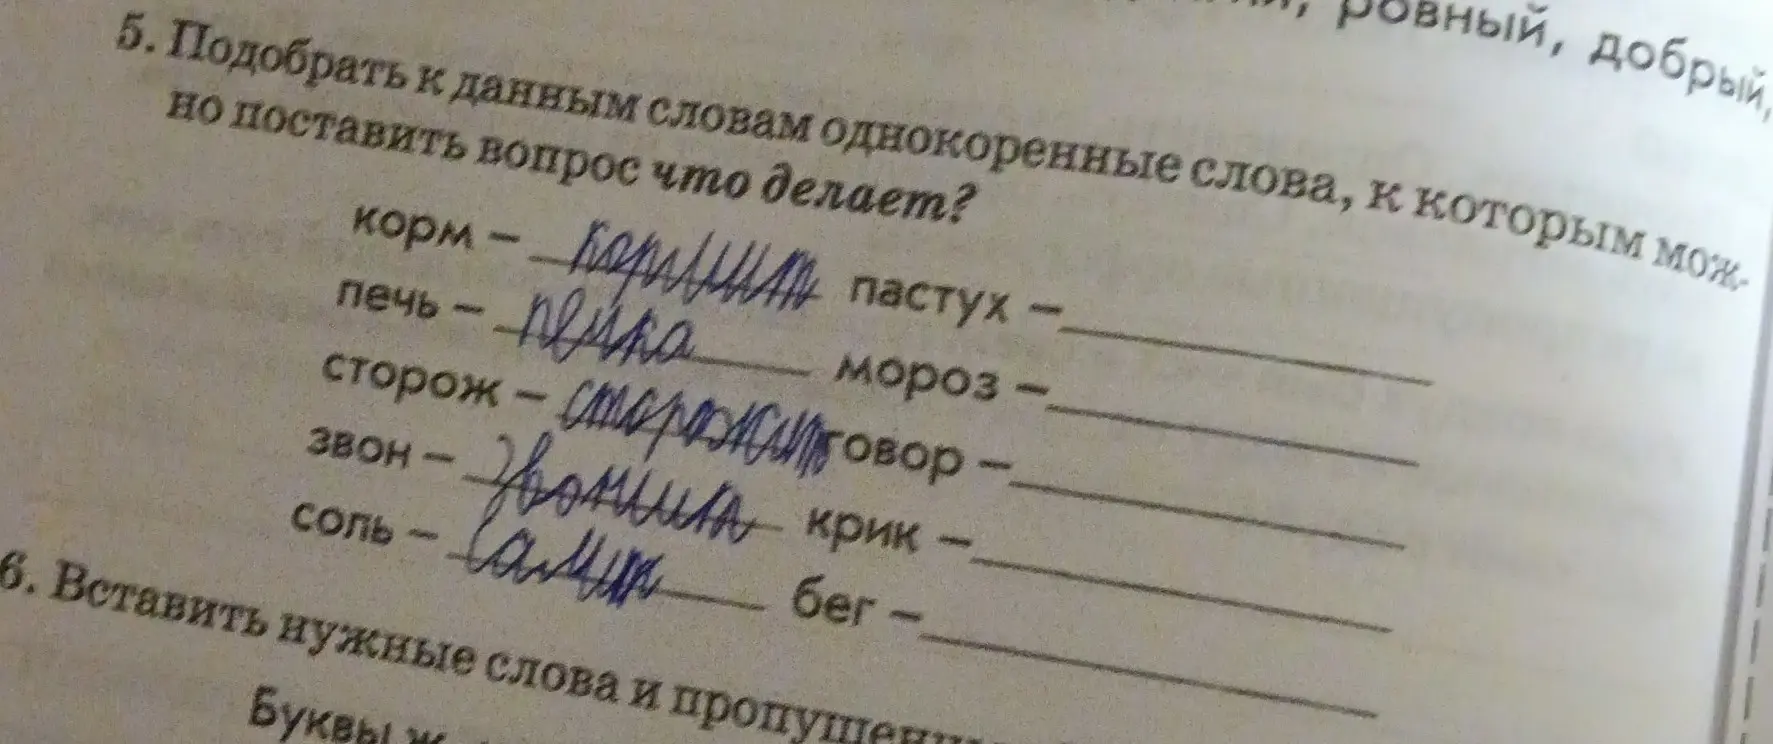 ровный, добрый,
5. Подобрать к данным словам однокоренные слова, к которым мож-
но поставить вопрос что делает?
корм – кормит пастух –
печь – печка мороз –
сторож – сторожит говор –
звон – звонит крик –
соль – солит бег –
6. Вставить нужные слова и
Буквы ж